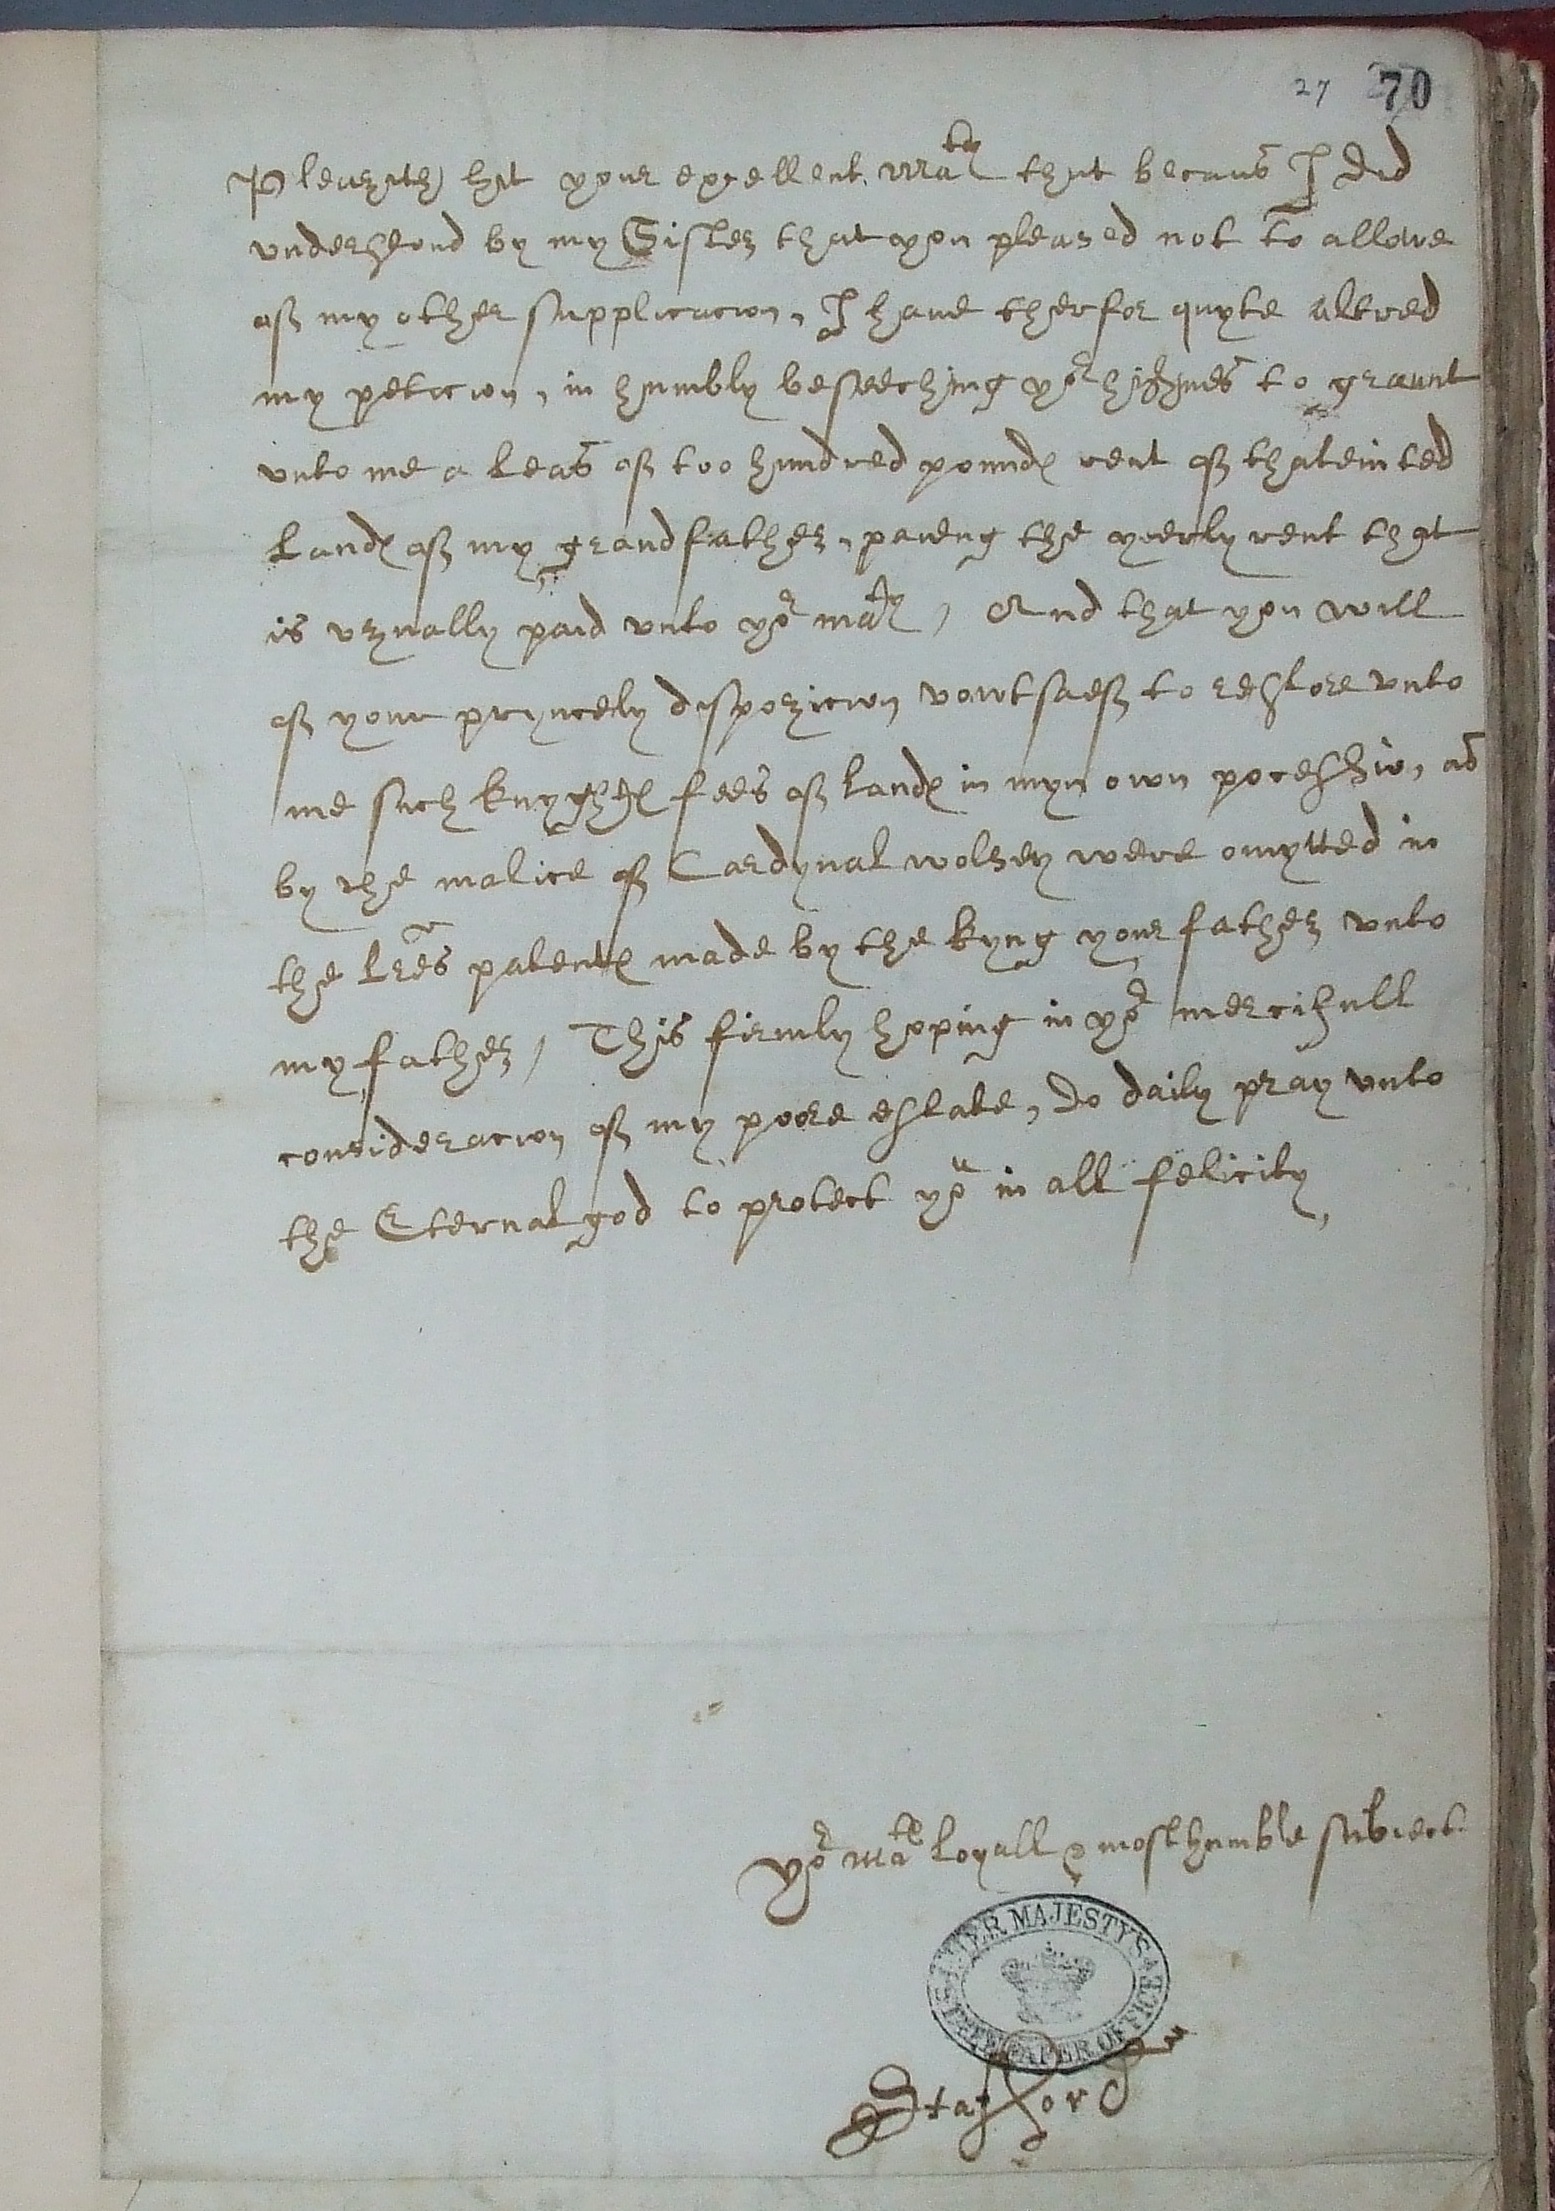 27 70
Pleazith hit your excellent Matey that becaus I did
understond by my Sister that you pleazed not to allowe
of my other supplicacion, I have therfor quyte altred
my peticion, in humbly beseeching yor highnes to graunt
vnto me a leas of too hundred poundes rent of thateinted
landes of my grandfather, paieng the yeerly rent that
is vzually paid vnto yor maty / And that you will
of your pryncely dispozicion voutsaef to restore vnto
me such knyghtes fees of landes in myn own poceshio, as
by the malice of Cardynal wolzey were omytted in
the lres patentes made by the kyng your father vnto
my father / This firmly hoping in yor mercifull
consideracion of my poore estate, do daily pray vnto
the Eternal god to protect you in all felicity,
yor mate loyall & most humble subiect.
HER MAJESTY'S STATE PAPER OFFICE
Stafford